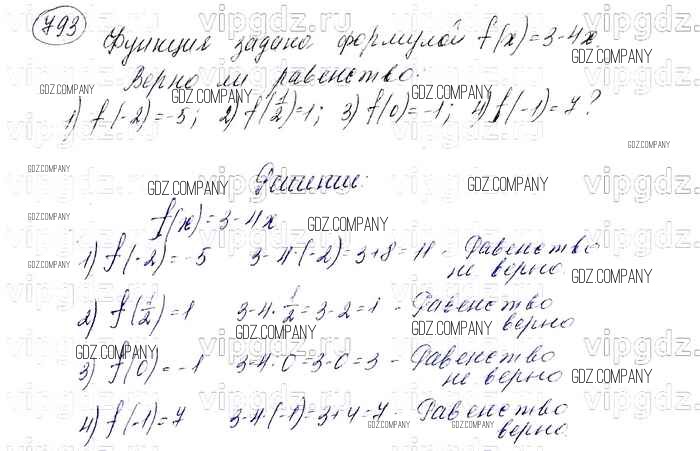 793
Функция задана формулой f(x)=3-4x.
Верно ли равенство:
1) f(-2)=-5; 2) f(1/2)=1; 3) f(0)=-1; 4) f(-1)=7?
Решение:
f(x)=3-4x
1) f(-2)=-5 3-4·(-2)=3+8=11 - Равенство
не верно.
2) f(1/2)=1 3-4·1/2=3-2=1 - Равенство
верно
3) f(0)=-1 3-4·0=3-0=3 - Равенство
не верно
4) f(-1)=7 3-4·(-1)=3+4=7 - Равенство
верно.
GDZ.COMPANY
vipgdz.ru